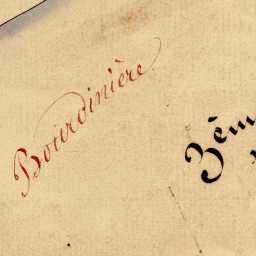 Bourdinière
3èm